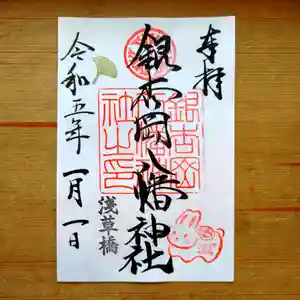 奉拝
銀杏岡八幡神社
銀杏岡
社之印
浅草橋
令和五年 一月一日